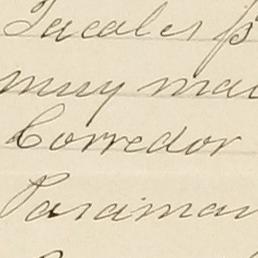 Jacales p
muy mal
Corredor
Paraiman